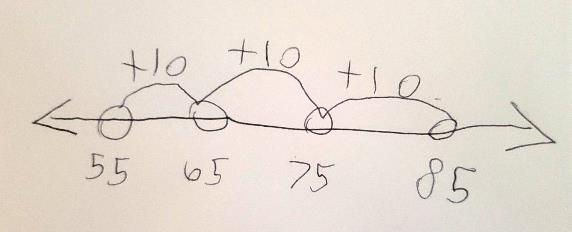 +10 +10 +10
55 65 75 85